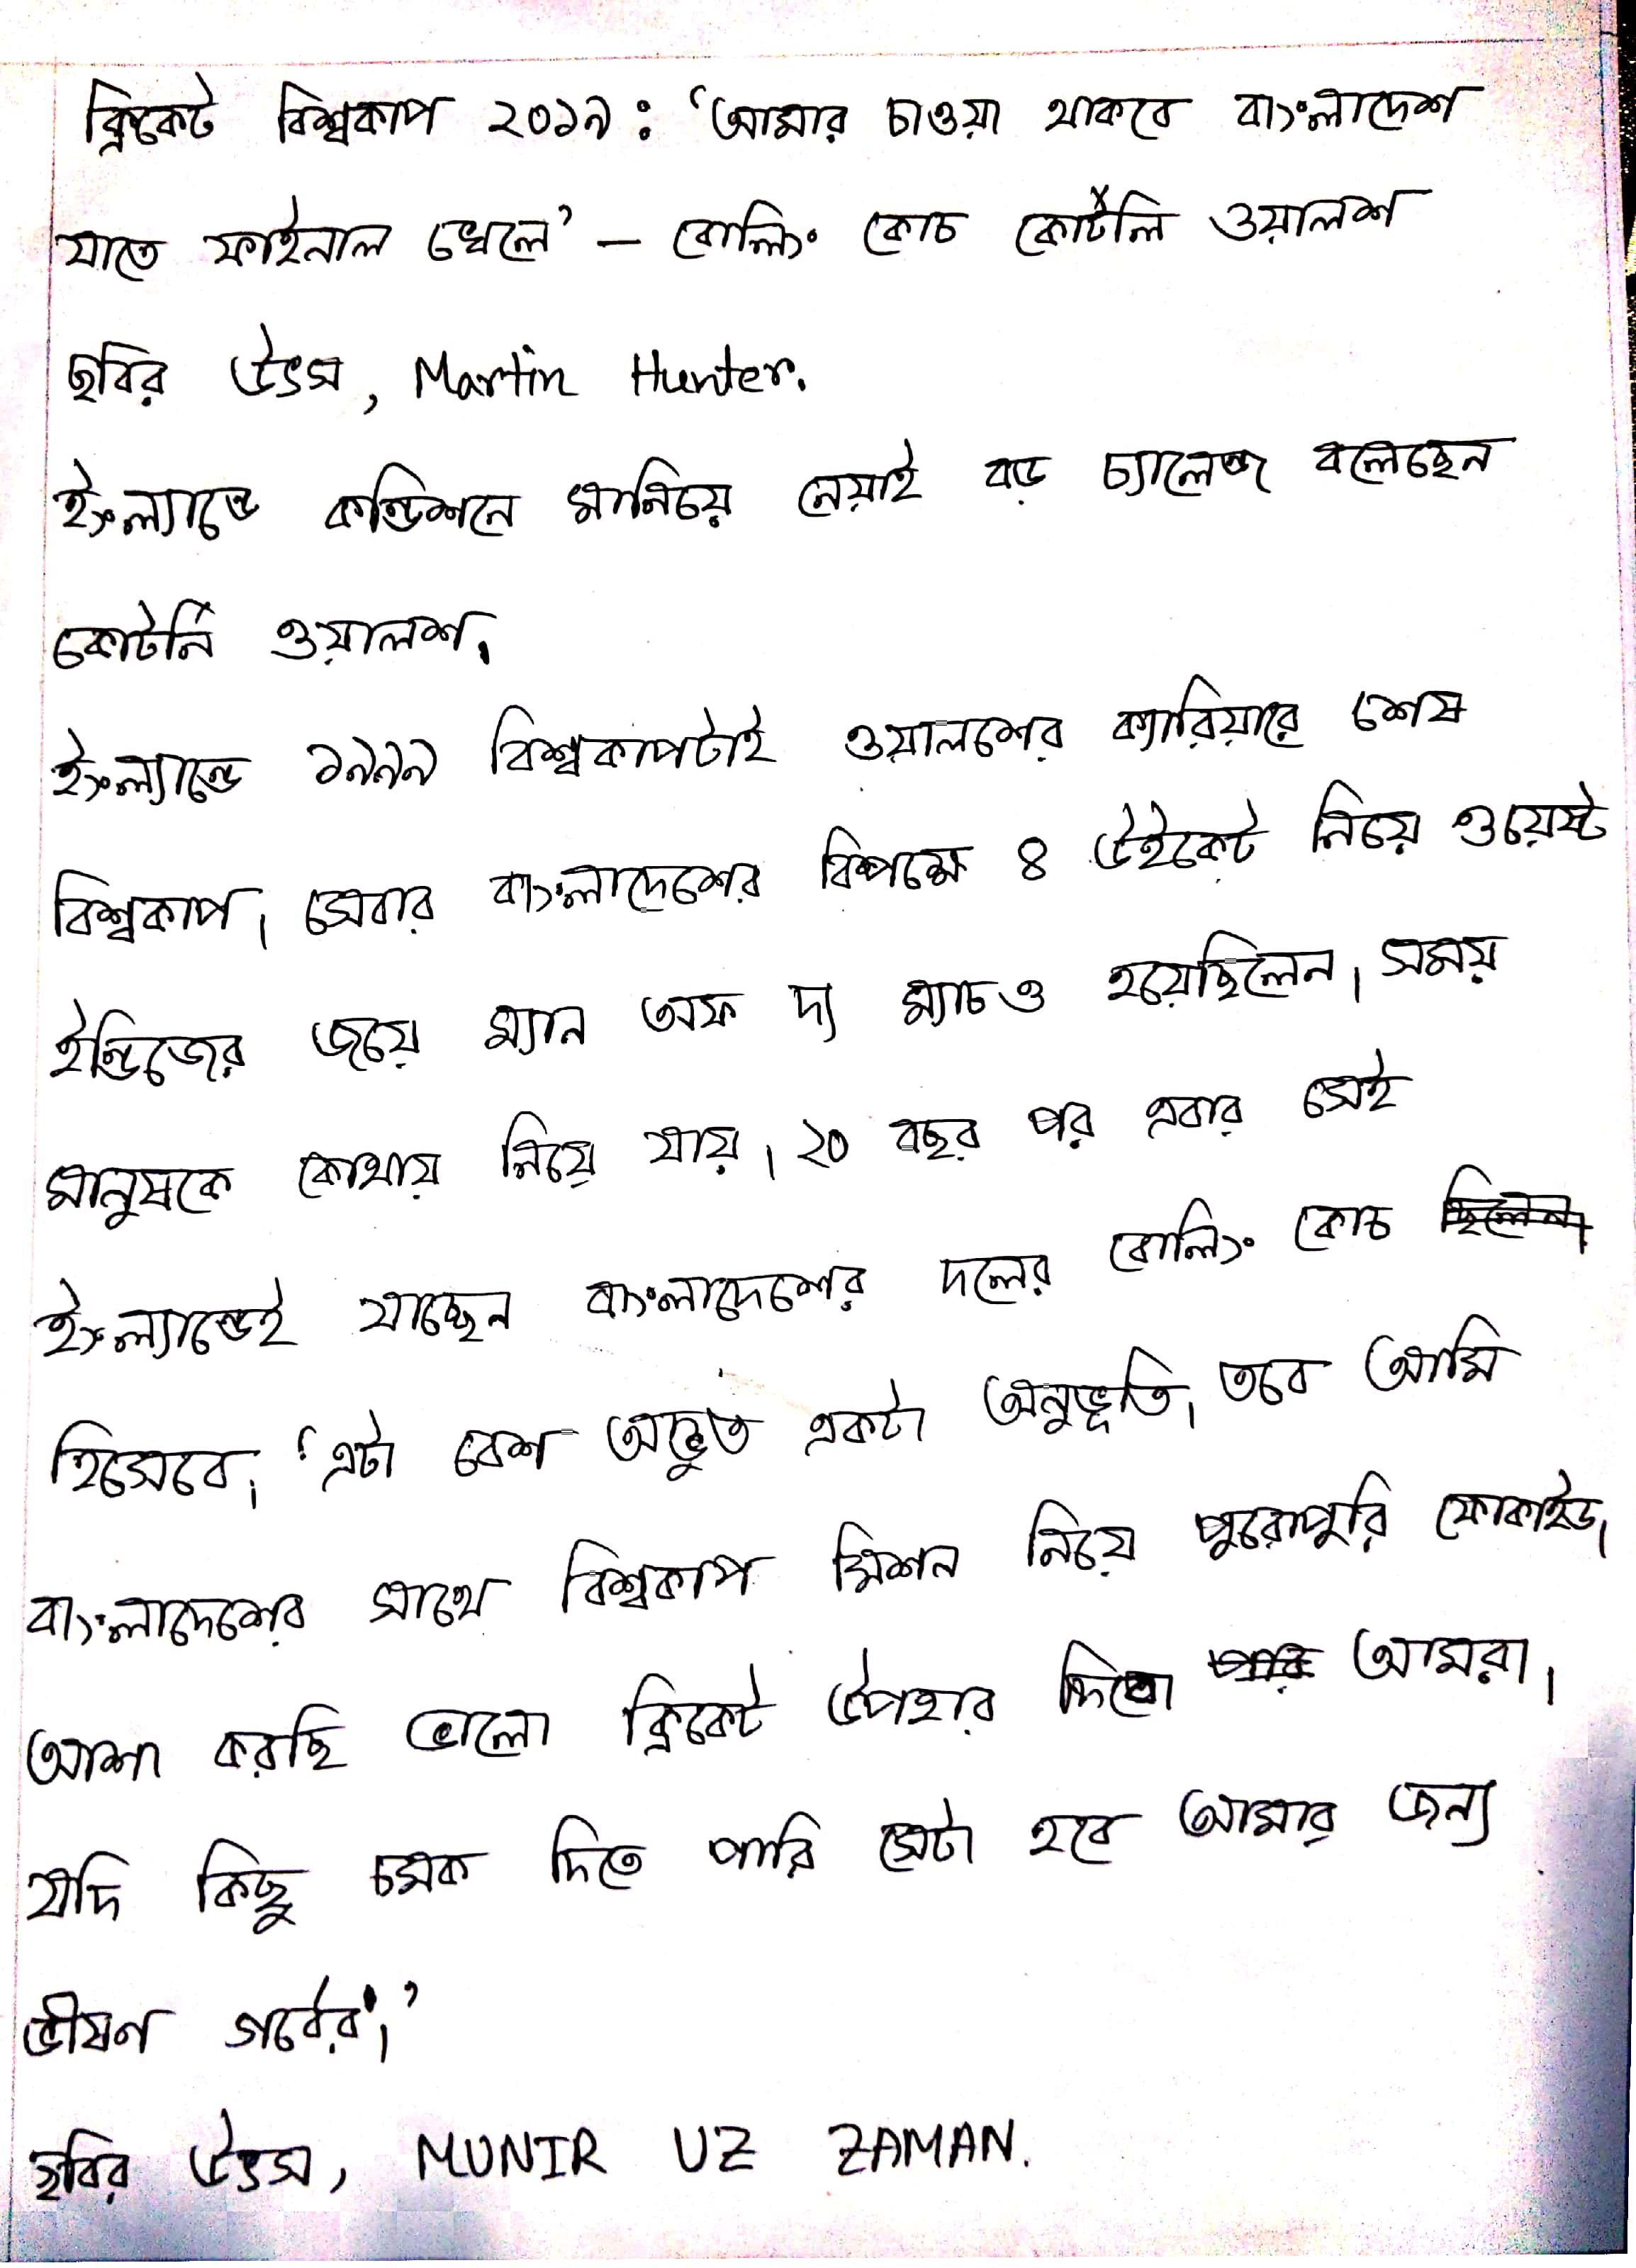 ক্রিকেট বিশ্বকাপ ২০১৯: ‘আমার চাওয়া থাকবে বাংলাদেশ
যাতে ফাইনাল খেলে’ – বোলিং কোচ কোর্টলি ওয়ালশ
ছবির উৎস, Martin Hunter.
ইংল্যান্ডে কন্ডিশনে মানিয়ে নেয়াই বড় চ্যালেঞ্জ বলেছেন
কোর্টনি ওয়ালশ।
ইংল্যান্ডে ১৯৯৯ বিশ্বকাপটাই ওয়ালশের ক্যারিয়ারে শেষ
বিশ্বকাপ। সেবার বাংলাদেশের বিপক্ষে ৪ উইকেট নিয়ে ওয়েস্ট
ইন্ডিজের জয়ে ম্যান অফ দ্য ম্যাচও হয়েছিলেন। সময়
মানুষকে কোথায় নিয়ে যায়। ২০ বছর পর এবার সেই
ইংল্যান্ডেই যাচ্ছেন বাংলাদেশের দলের বোলিং কোচ
হিসেবে। ‘এটা বেশ অদ্ভুত একটা অনুভূতি। তবে আমি
বাংলাদেশের সাথে বিশ্বকাপ মিশন নিয়ে পুরোপুরি ফোকাইড।
আশা করছি ভালো ক্রিকেট উপহার দিবো আমরা।
যদি কিছু চমক দিতে পারি সেটা হবে আমার জন্য
ভীষণ গর্বের।’
ছবির উৎস, MUNIR UZ ZAMAN.